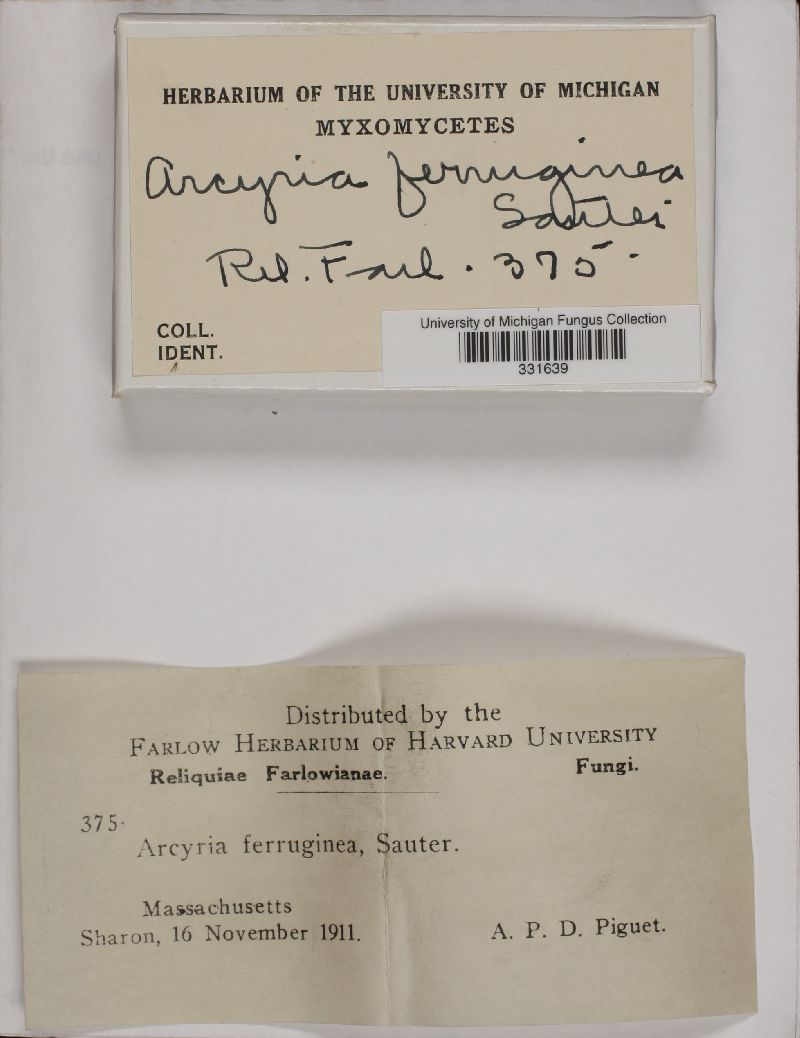 HERBARIUM OF THE UNIVERSITY OF MICHIGAN
MYXOMYCETES
Arcyria ferruginea
Sauter
Rel. Farl. 375.
COLL.
IDENT.
University of Michigan Fungus Collection
331639
Distributed by the
FARLOW HERBARIUM OF HARVARD UNIVERSITY
Reliquiae Farlowianae. Fungi.
375.
Arcyria ferruginea, Sauter.
Massachusetts
Sharon, 16 November 1911. A. P. D. Piguet.